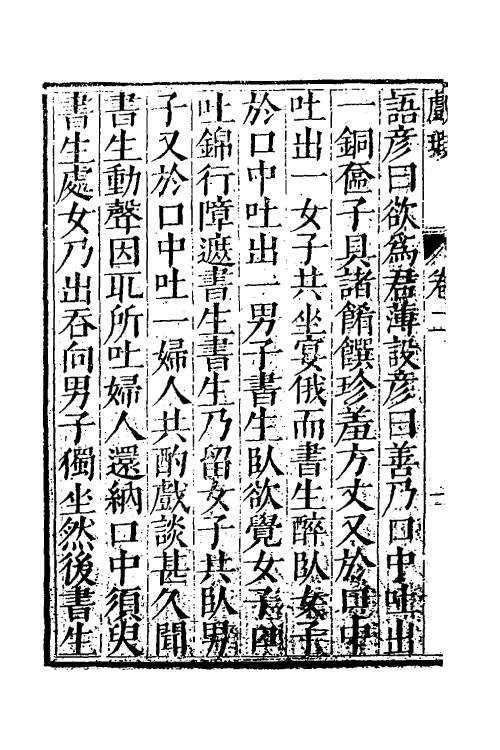 戲瑕 卷二
語彥曰欲為君薄設彥曰善乃口中吐出
一銅奩子具諸餚饌珍羞方丈又於口中
吐出一女子共坐宴俄而書生醉臥女子
於口中吐出一男子書生臥欲覺女子
吐錦行障遮書生書生乃留女子共臥男
子又於口中吐一婦人共酌戲談甚久聞
書生動聲因取所吐婦人還納口中須臾
書生處女乃出吞向男子獨坐然後書生